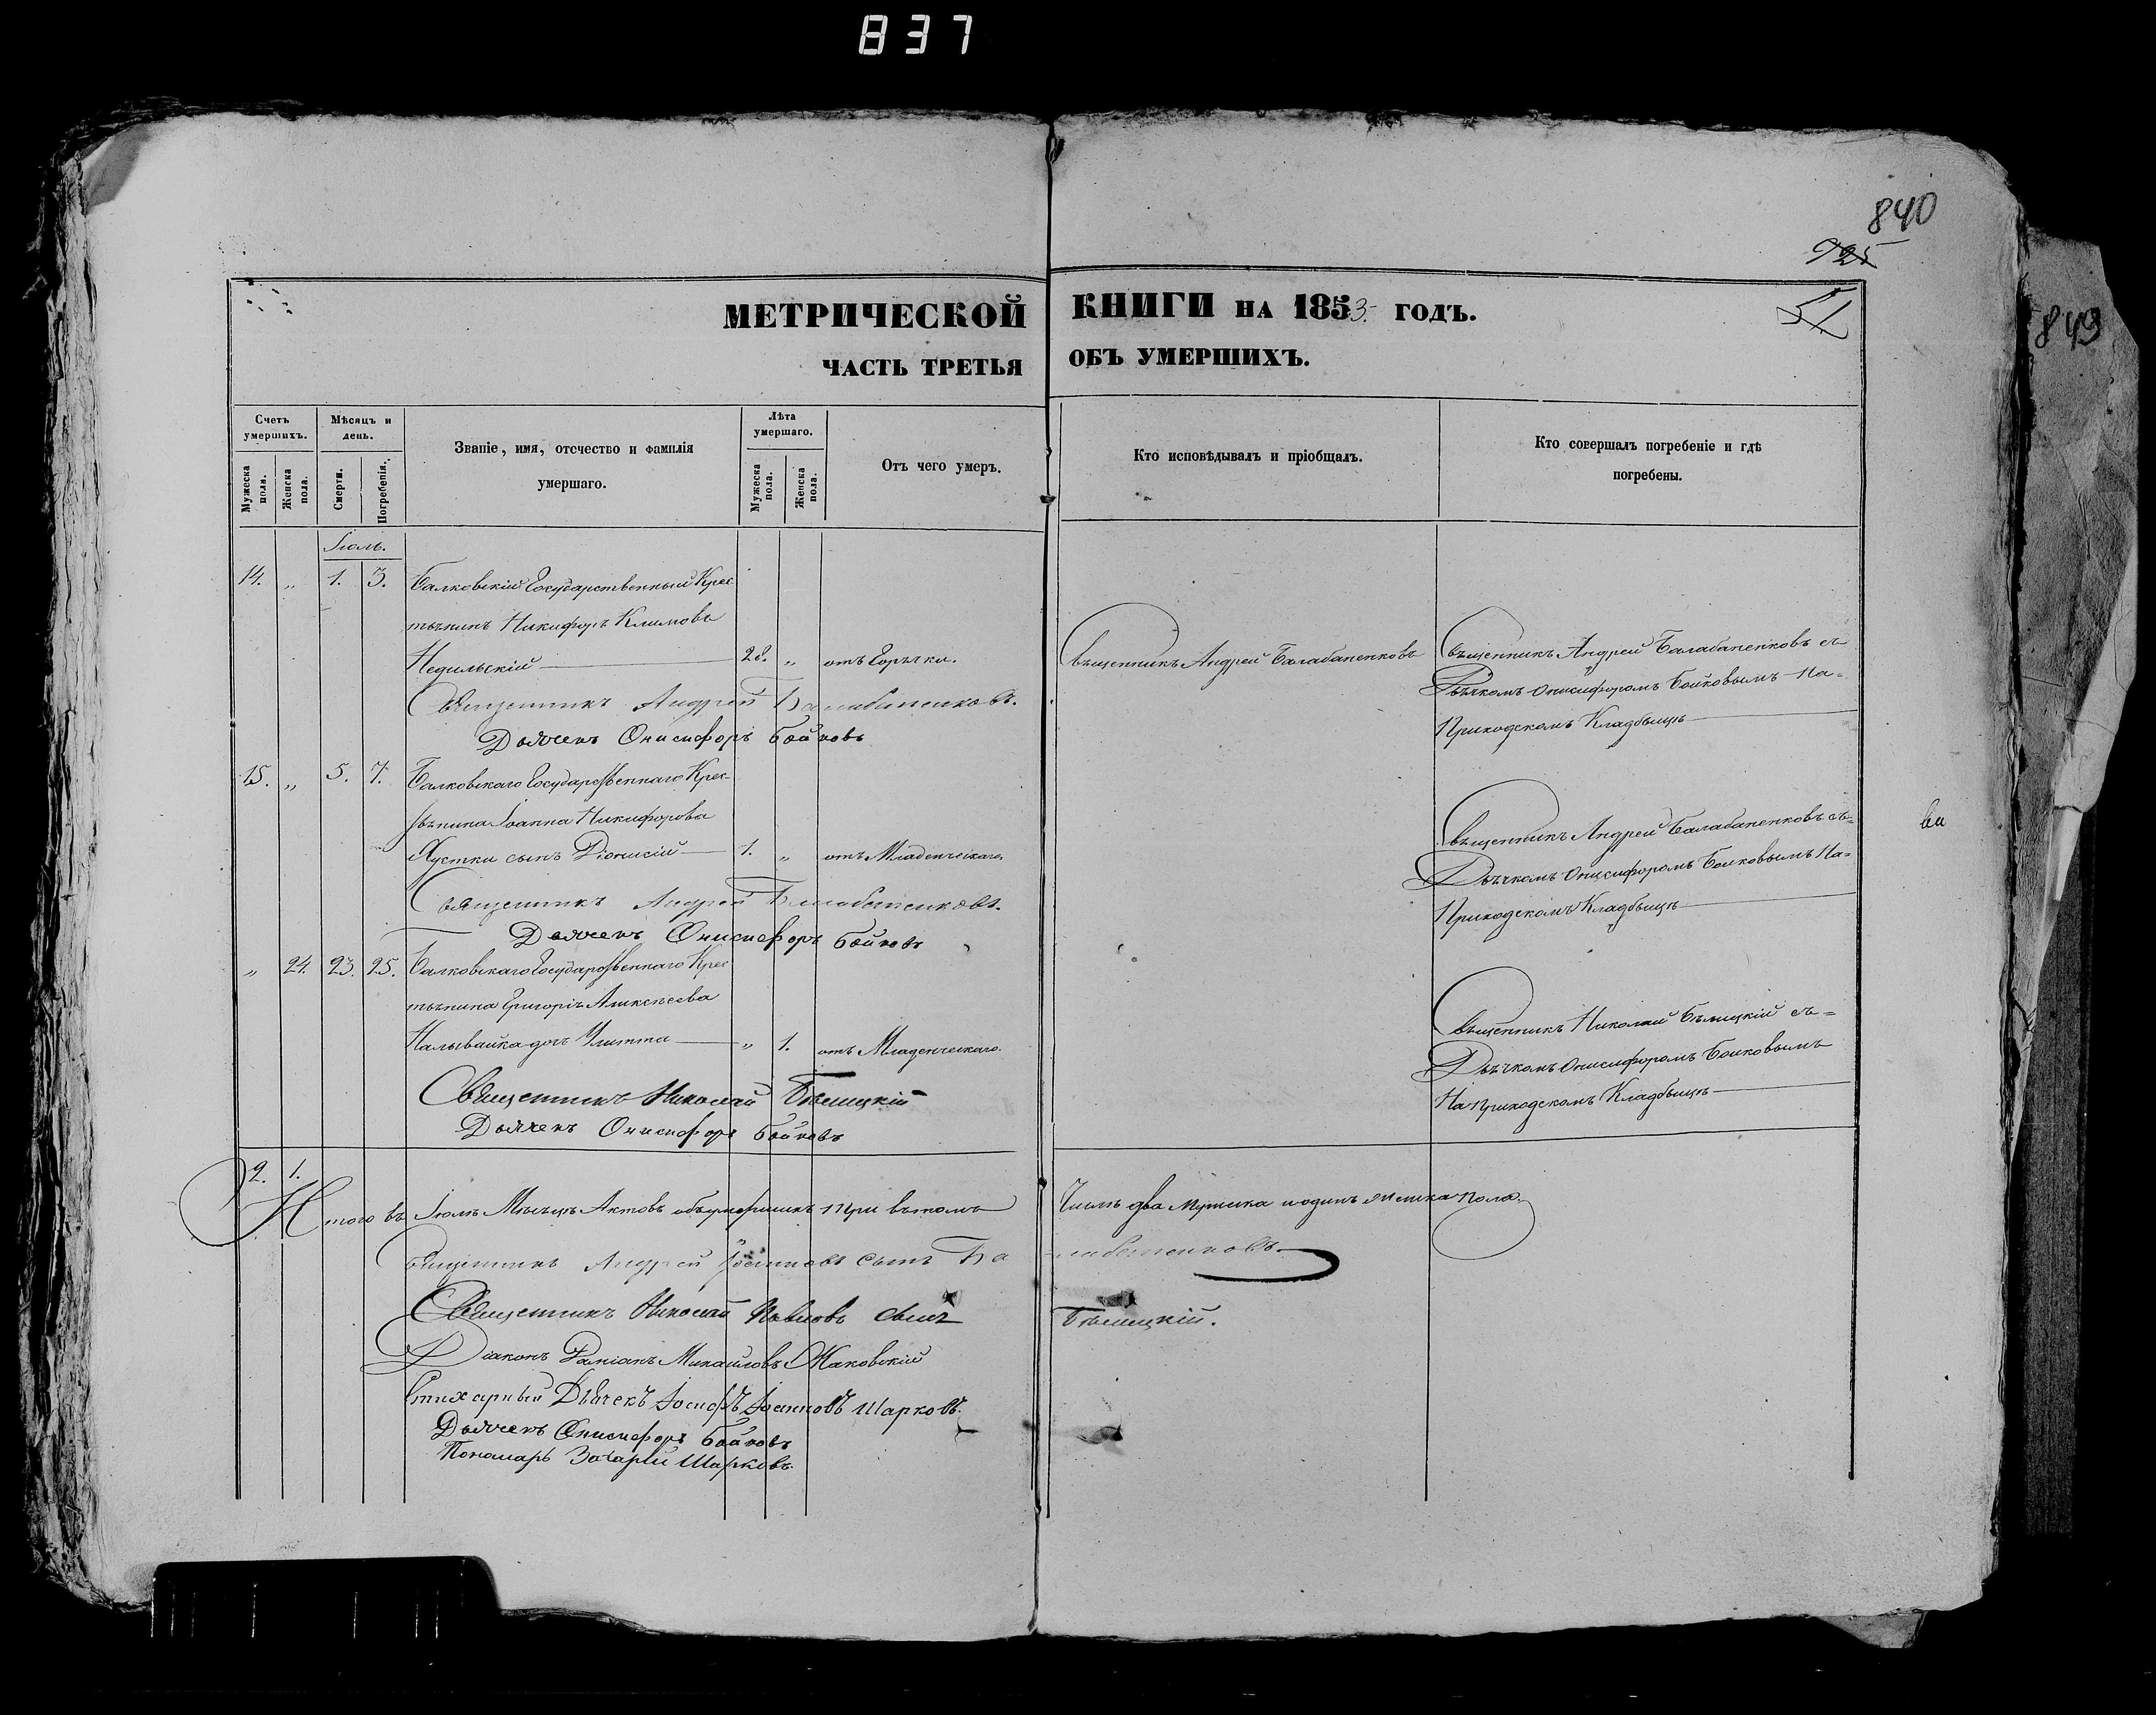 837
840
925
51
849
МЕТРИЧЕСКОЙ КНИГИ НА 1853. ГОДЪ.
ЧАСТЬ ТРЕТЬЯ ОБЪ УМЕРШИХЪ.
Счетъ умершихъ.
Мужеска пола.
Женска пола.
Мѣсяцъ и день.
Смерти.
Погребенія.
Званіе, имя, отечество и фамилія
умершаго.
Лѣта умершаго.
Мужеска пола.
Женска пола.
Отъ чего умеръ.
Кто исповѣдывалъ и пріобщалъ.
Кто совершалъ погребеніе и гдѣ
погребены.
Іюль.
14. „ 1. 3. Балковскій Государственный Крес
тьянинъ Никифоръ Климовъ
Недильскій 28. „ отъ Горячки.
Священникъ Андрей Балабаненковъ
Священникъ Андрей Балабаненковъ съ
Дьячкомъ Онисифоромъ Бойковымъ На=
Приходскомъ Кладбищѣ
Священникъ Андрей Балабаненковъ.
Дьячекъ Онисифоръ Бойковъ
15. „ 5. 7. Балковскаго Государственнаго Крес-
тьянина Іоанна Никифорова
Хустки сынъ Діонисій 1. „ отъ Младенческаго.
Священникъ Андрей Балабаненковъ съ=
Дьячкомъ Онисифоромъ Бойковымъ На=
Приходскомъ Кладбищѣ
Священникъ Андрей Балабаненковъ.
Дьячекъ Онисифоръ Бойковъ
„ 24. 23. 25. Балковскаго Государственнаго Крес
тьянина Григорія Алексеева
Наливайка дочь Улитта „ 1. отъ Младенческаго.
Священникъ Николай Бѣлицкій съ=
Дьячкомъ Онисифоромъ Бойковымъ
На приходскомъ Кладбищѣ
Священникъ Николай Бѣлицкій
Дьячекъ Онисифоръ Бойковъ
2. 1.
Итого въ Іюлѣ Мѣсяцѣ Актовъ объ умершихъ три въ томъ Числѣ два Мужеска и одинъ женска пола.
Священникъ Андрей сынъ Балабаненковъ.
Священникъ Николай Павловъ сынъ Бѣлицкій.
Діаконъ Даміанъ Михайловъ Жаковскій
Стихарный Дьячекъ Іосифъ Іоанновъ Шарковъ.
Дьячекъ Онисифоръ Бойковъ
Пономарь Захарій Шарковъ.